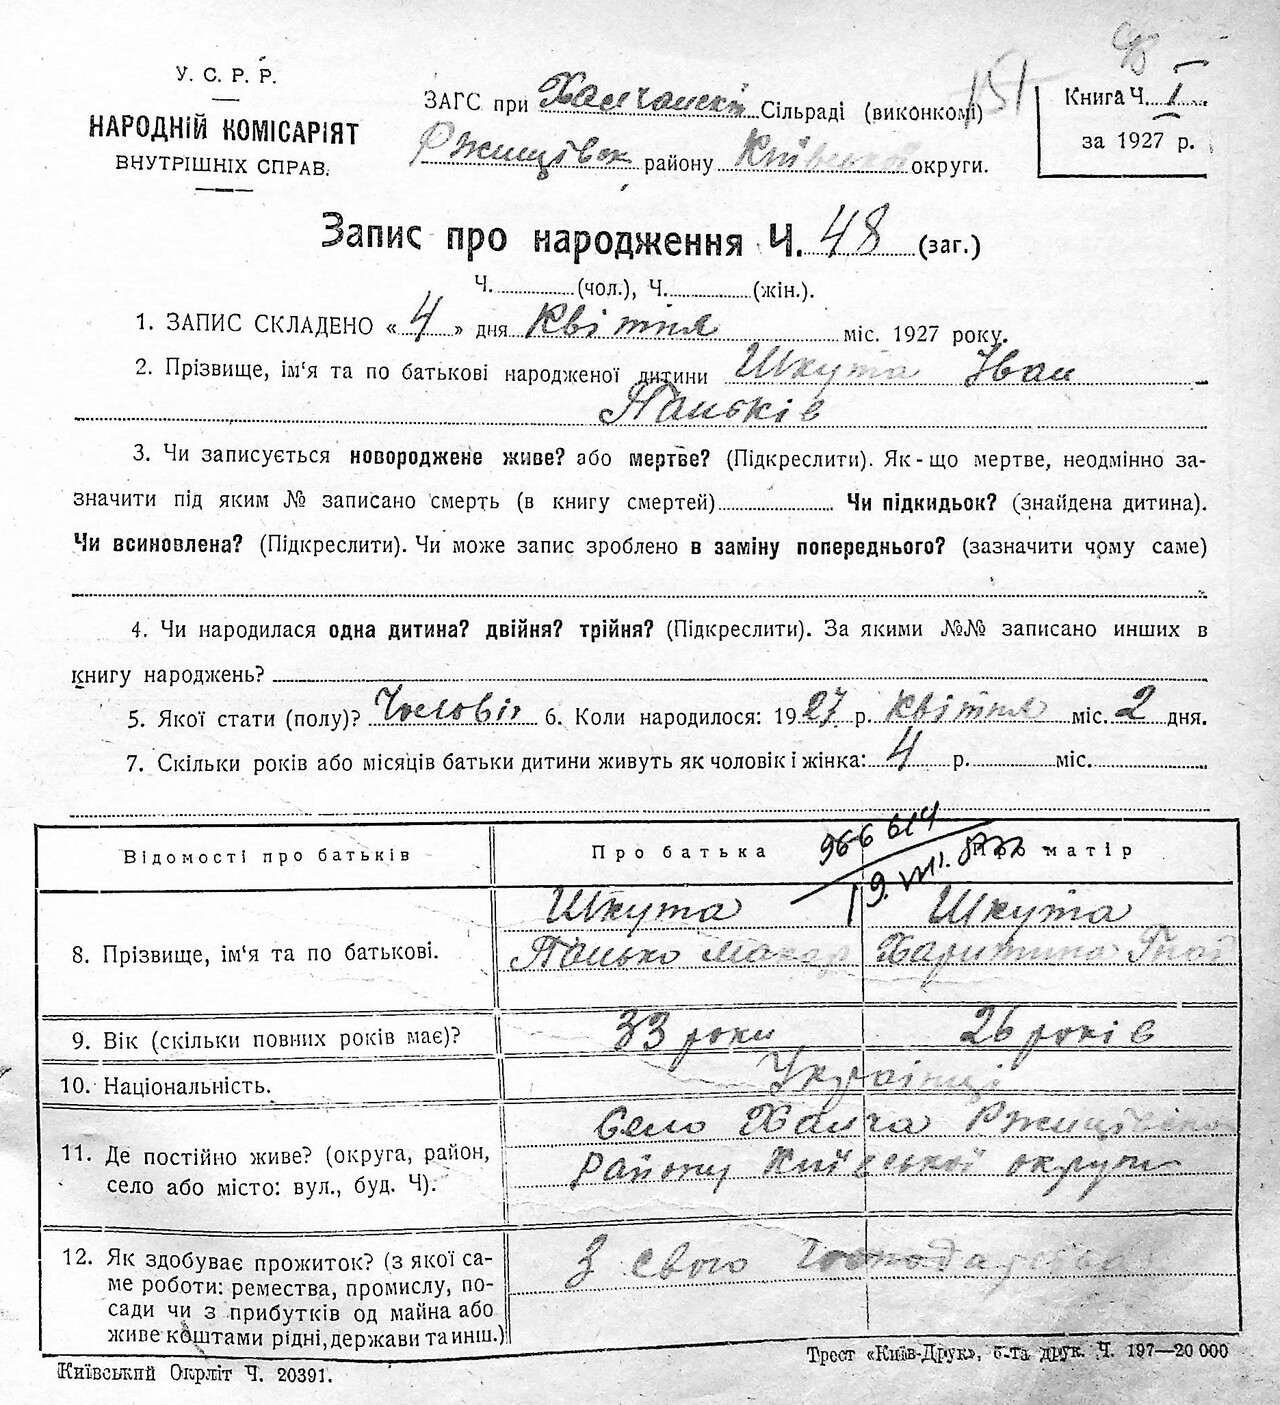 У. С. Р. Р.
НАРОДНІЙ КОМІСАРІЯТ
ВНУТРІШНІХ СПРАВ.
ЗАГС при Халчанскій Сільраді (виконкомі)
Ржищівск району Київської округи.
151
Книга Ч. I
за 1927 р.
Запис про народження Ч. 48 (заг.)
Ч. (чол.), Ч. (жін.).
1. ЗАПИС СКЛАДЕНО « 4 » дня Квітня міс. 1927 року.
2. Прізвище, ім‘я та по батькові народженої дитини Шкута Іван
Паньків
3. Чи записується новороджене живе? або мертве? (Підкреслити). Як-що мертве, неодмінно за-
значити під яким № записано смерть (в книгу смертей) Чи підкидьок? (знайдена дитина).
Чи всиновлена? (Підкреслити). Чи може запис зроблено в заміну попереднього? (зазначити чому саме)
4. Чи народилася одна дитина? двійня? трійня? (Підкреслити). За якими №№ записано инших в
книгу народжень?
5. Якої стати (полу)? Чоловіч 6. Коли народилось: 1927 р. Квітня міс. 2 дня.
7. Скільки років або місяців батьки дитини живуть як чоловік і жінка: 4 р. міс.
966 614
9. VIII.
Відомості про батьків
Про батька
Про матір
8. Прізвище, ім‘я та по батькові.
Шкута
Панько Макар
Шкута
Харитина Гнат
9. Вік (скільки повних років має)?
33 роки
26 років
10. Національність.
Українці
11. Де постійно живе? (округа, район,
село або місто: вул., буд. Ч).
Село Халча Ржищівско
Району Київської округи
12. Як здобуває прожиток? (з якої са-
ме роботи: ремества, промислу, по-
сади чи з прибутків од майна або
живе коштами рідні, держави та инш.)
З свого Господарства
Київський Окрліт Ч. 20391.
Трест «Київ-Друк», 6-та друк. Ч. 197—20 000